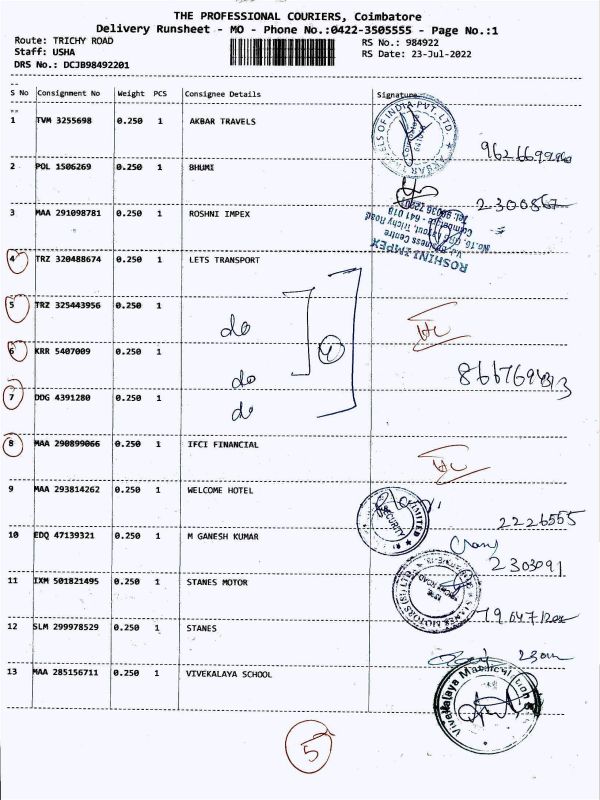 THE PROFESSIONAL COURIERS, Coimbatore
Delivery Runsheet - MO - Phone No.:0422-3505555 - Page No.:1
Route: TRICHY ROAD RS No.: 984922
Staff: USHA RS Date: 23-Jul-2022
DRS No.: DCJB98492201
S No Consignment No Weight PCS Consignee Details Signature
1 TVM 3255698 0.250 1 AKBAR TRAVELS
AKBAR TRAVELS OF INDIA PVT. LTD.
2 POL 1506269 0.250 1 BHUMI
2300867
3 MAA 291098781 0.250 1 ROSHNI IMPEX
ROSHINI IMPEX
4 TRZ 320488674 0.250 1 LETS TRANSPORT
5 TRZ 325443956 0.250 1
do
6 KRR 5407009 0.250 1
do
4
7 DDG 4391280 0.250 1
do
8 MAA 290899066 0.250 1 IFCI FINANCIAL
9 MAA 293814262 0.250 1 WELCOME HOTEL
LIMITED
SECURITY
2226555
10 EDQ 47139321 0.250 1 M GANESH KUMAR
2303091
11 IXM 501821495 0.250 1 STANES MOTOR
STANES MOTORS
12 SLM 299978529 0.250 1 STANES
13 MAA 285156711 0.250 1 VIVEKALAYA SCHOOL
Vivekalaya
5